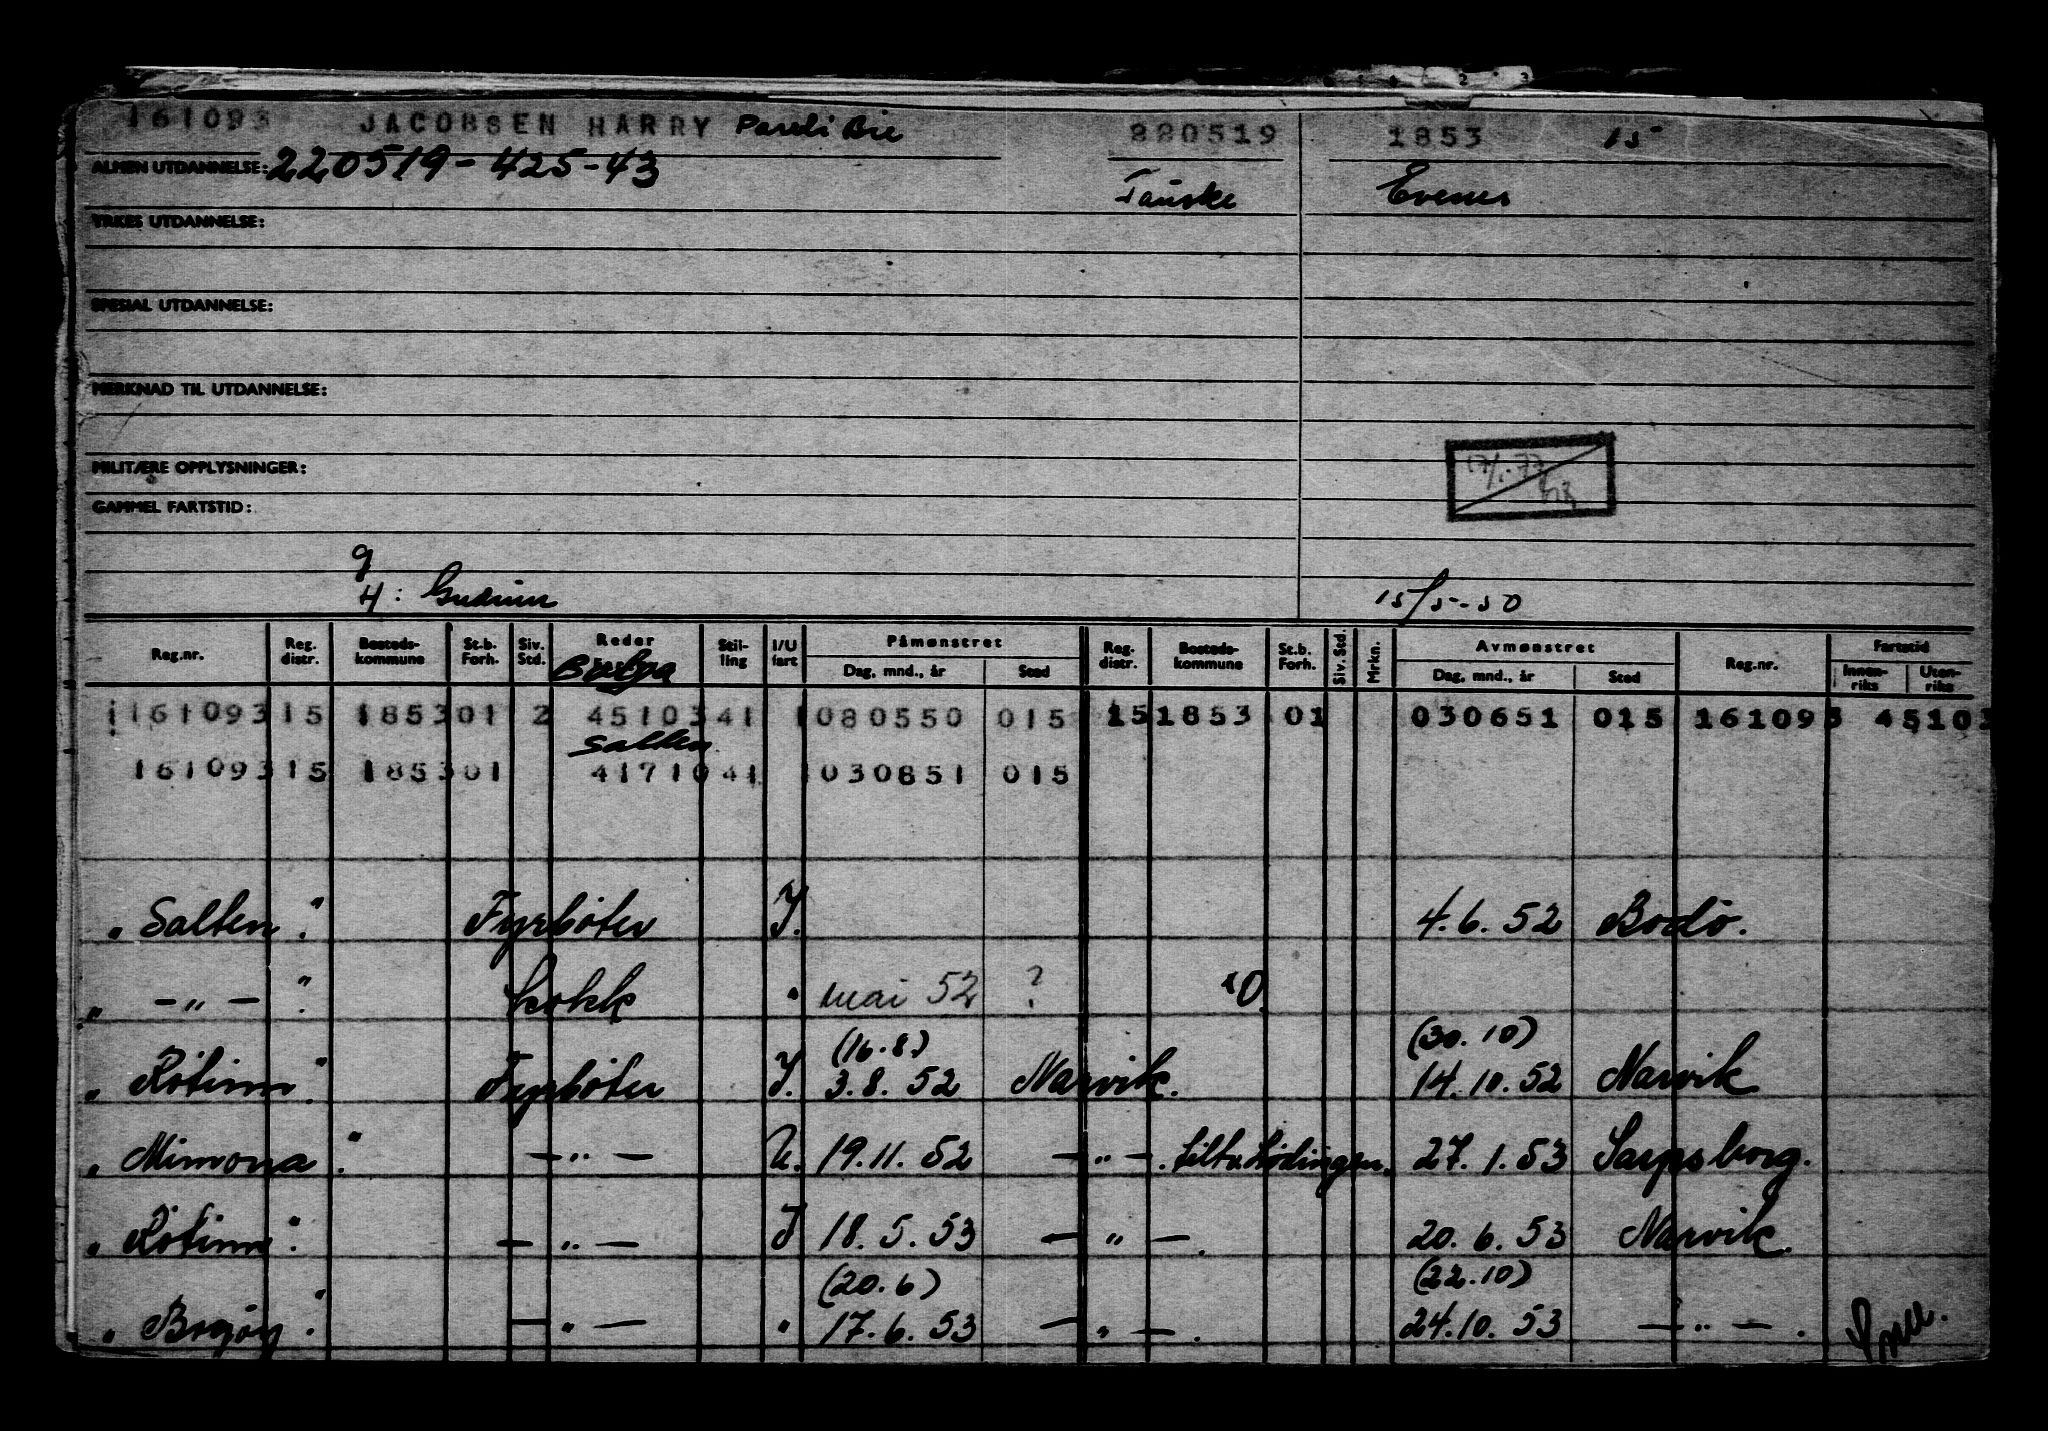 161093 JACOBSEN HARRY 880519 1853 15
ALMEN UTDANNELSE: 220519-425-43
Fauske Evenes
YRKES UTDANNELSE:
SPESIAL UTDANNELSE:
MERKNAD TIL UTDANNELSE:
MILITÆRE OPPLYSNINGER:
GAMMEL FARTSTID:
g
H: Gudrun 15/5-50
Reg.nr. Reg. distr. Bosteds-kommune St.b. Forh. Siv. Std. Reder Stil-ling I/U fart Påmønstret Dag, mnd., år Sted Reg. distr. Bosteds-kommune St.b. Forh. Siv. Std. Mrkn. Avmønstret Dag, mnd., år Sted Reg.nr. Fartstid Innen-riks Uten-riks
161093 15 1853 01 2 45103 41 1 080550 015 15 1853 01 030651 015 161093 45103
Salten
161093 15 1853 01 41710 41 1 030851 015
" Salten ". Fyrbøter I. 4.6.52 Bodø.
" -"- ". kokk " mai 52 ?
(16.8) (30.10)
" Rötinn ". Fyrbøter I. 3.8.52 Narvik. 14.10.52 Narvik
" Mimona ". -"- U. 19.11.52 -"-. 27.1.53 Sarpsborg.
" Rötinn ". -"- I 18.5.53 -"-. 20.6.53 Narvik.
(20.6) (22.10)
" Bogøy ". -"- " 17.6.53 -"-. 24.10.53 -"-.